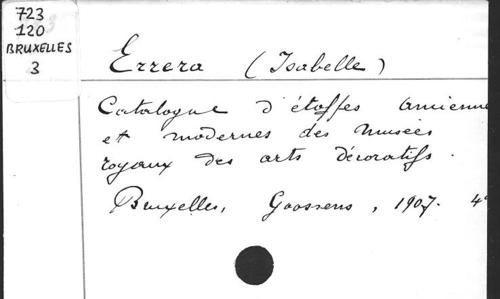 723
120
BRUXELLES
3
Errera (Isabelle)
Catalogue d'étoffes ancienne
et modernes des musées
royaux des arts décoratifs.
Bruxelles, Goossens, 1907. 4°